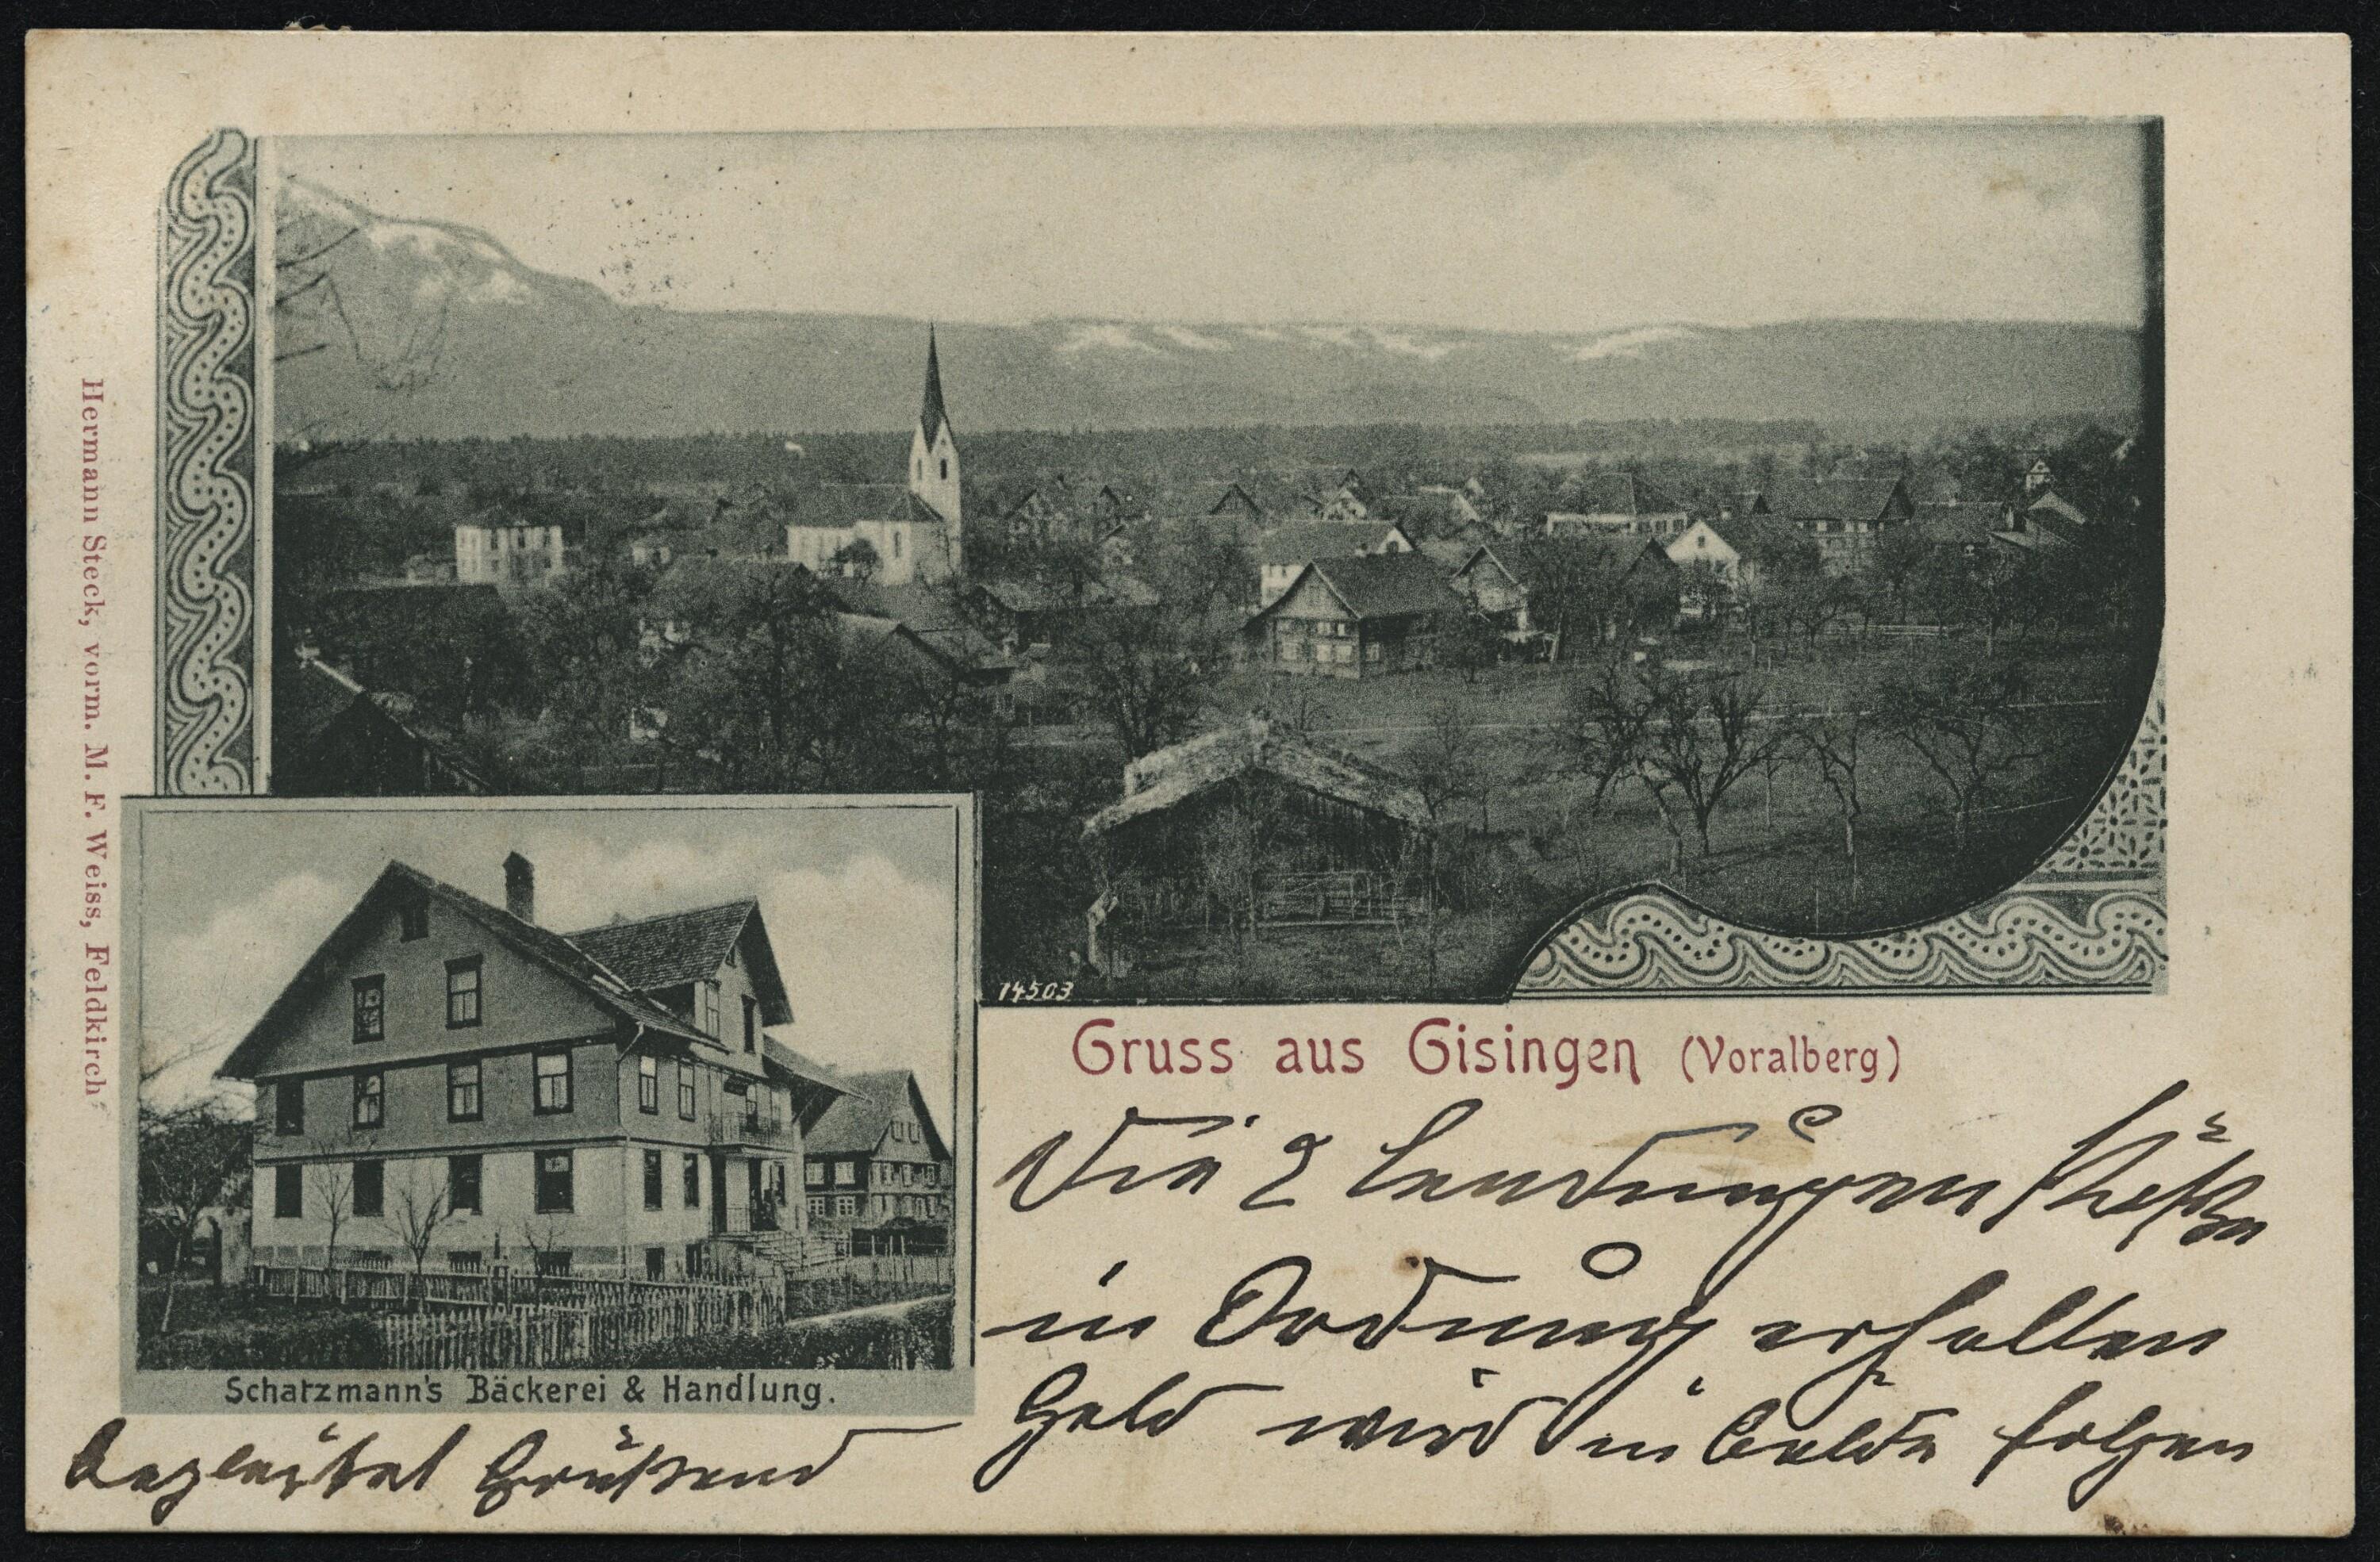 Hermann Steck, vorm. M. F. Weiss, Feldkirch
14503
Gruss aus Gisingen (Voralberg)
Schatzmann's Bäckerei & Handlung.
Die 2 Sendungen
in Ordnung erhalten
Geld wird in Balde folgen
Grüßend